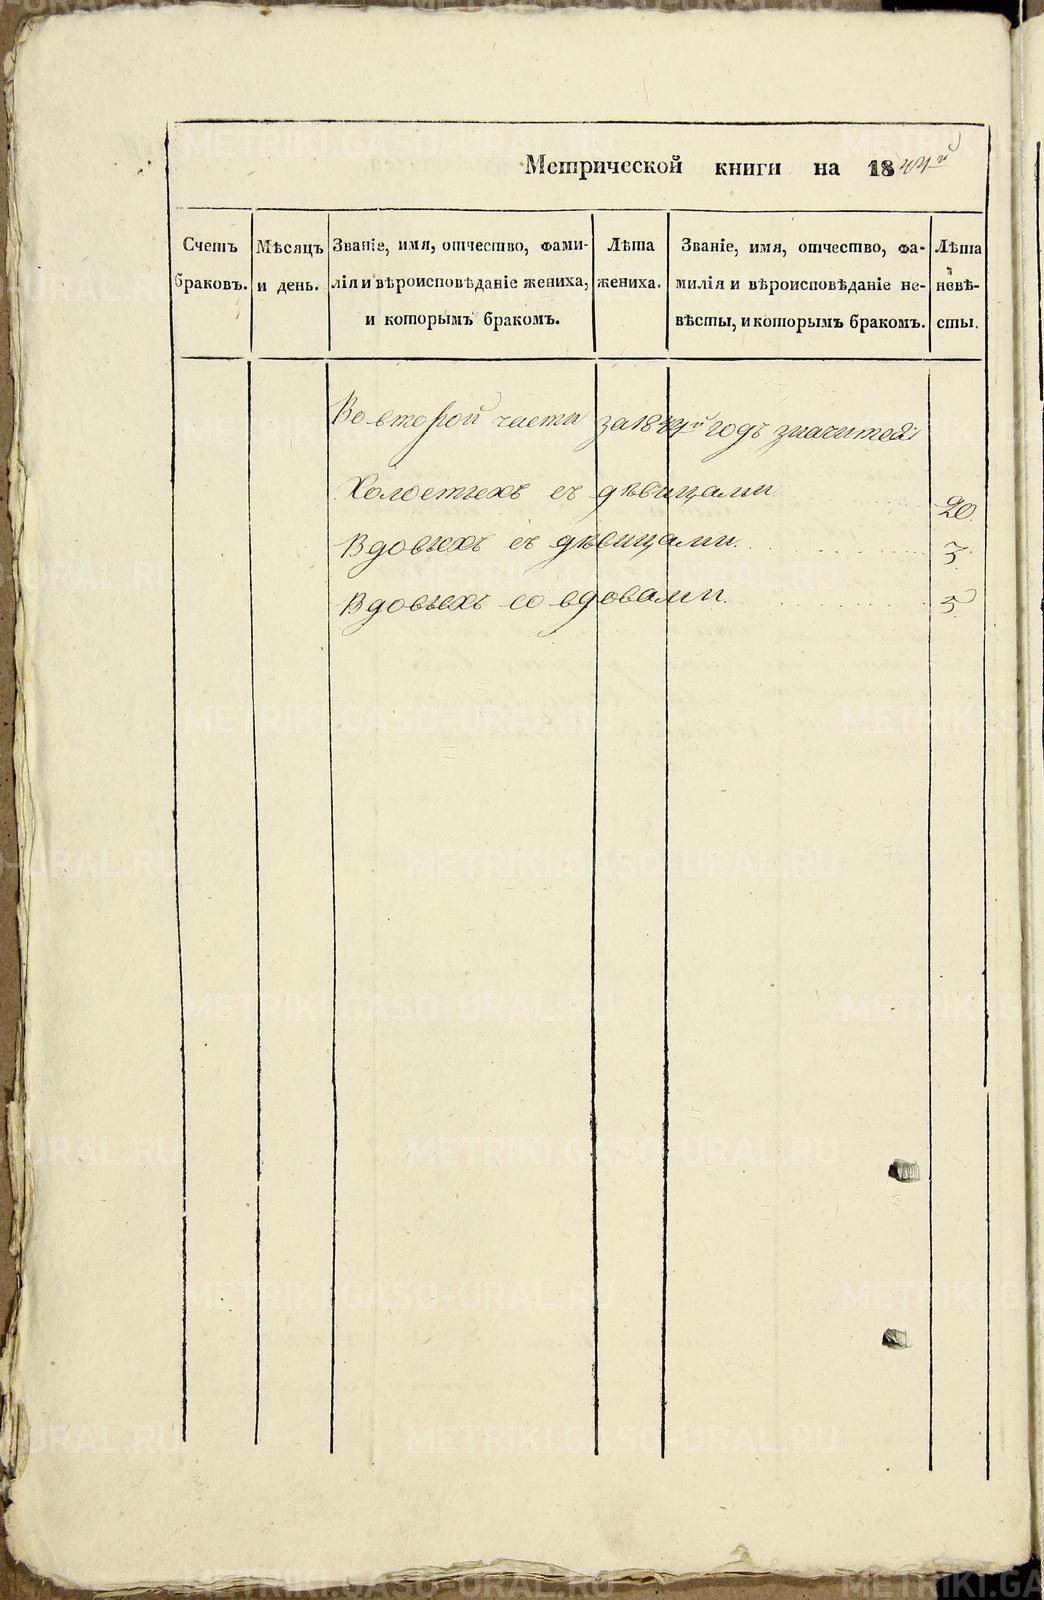 Метрической книги на 1844й
Счетъ браковъ.
Мѣсяцъ и день.
Званіе, имя, отчество, фами-
лія и вѣроисповѣданіе жениха,
и которымъ бракомъ.
Лѣта
жениха.
Званіе, имя, отчество, фа-
милія и вѣроисповѣданіе не-
вѣсты, и которымъ бракомъ.
Лѣта
невѣ-
сты.
Во второй части за 1844й годъ значится
Холостыхъ съ дѣвицами 20.
Вдовыхъ съ дѣвицами. 3.
Вдовыхъ со вдовами. 5
METRIKI.GASO-URAL.RU